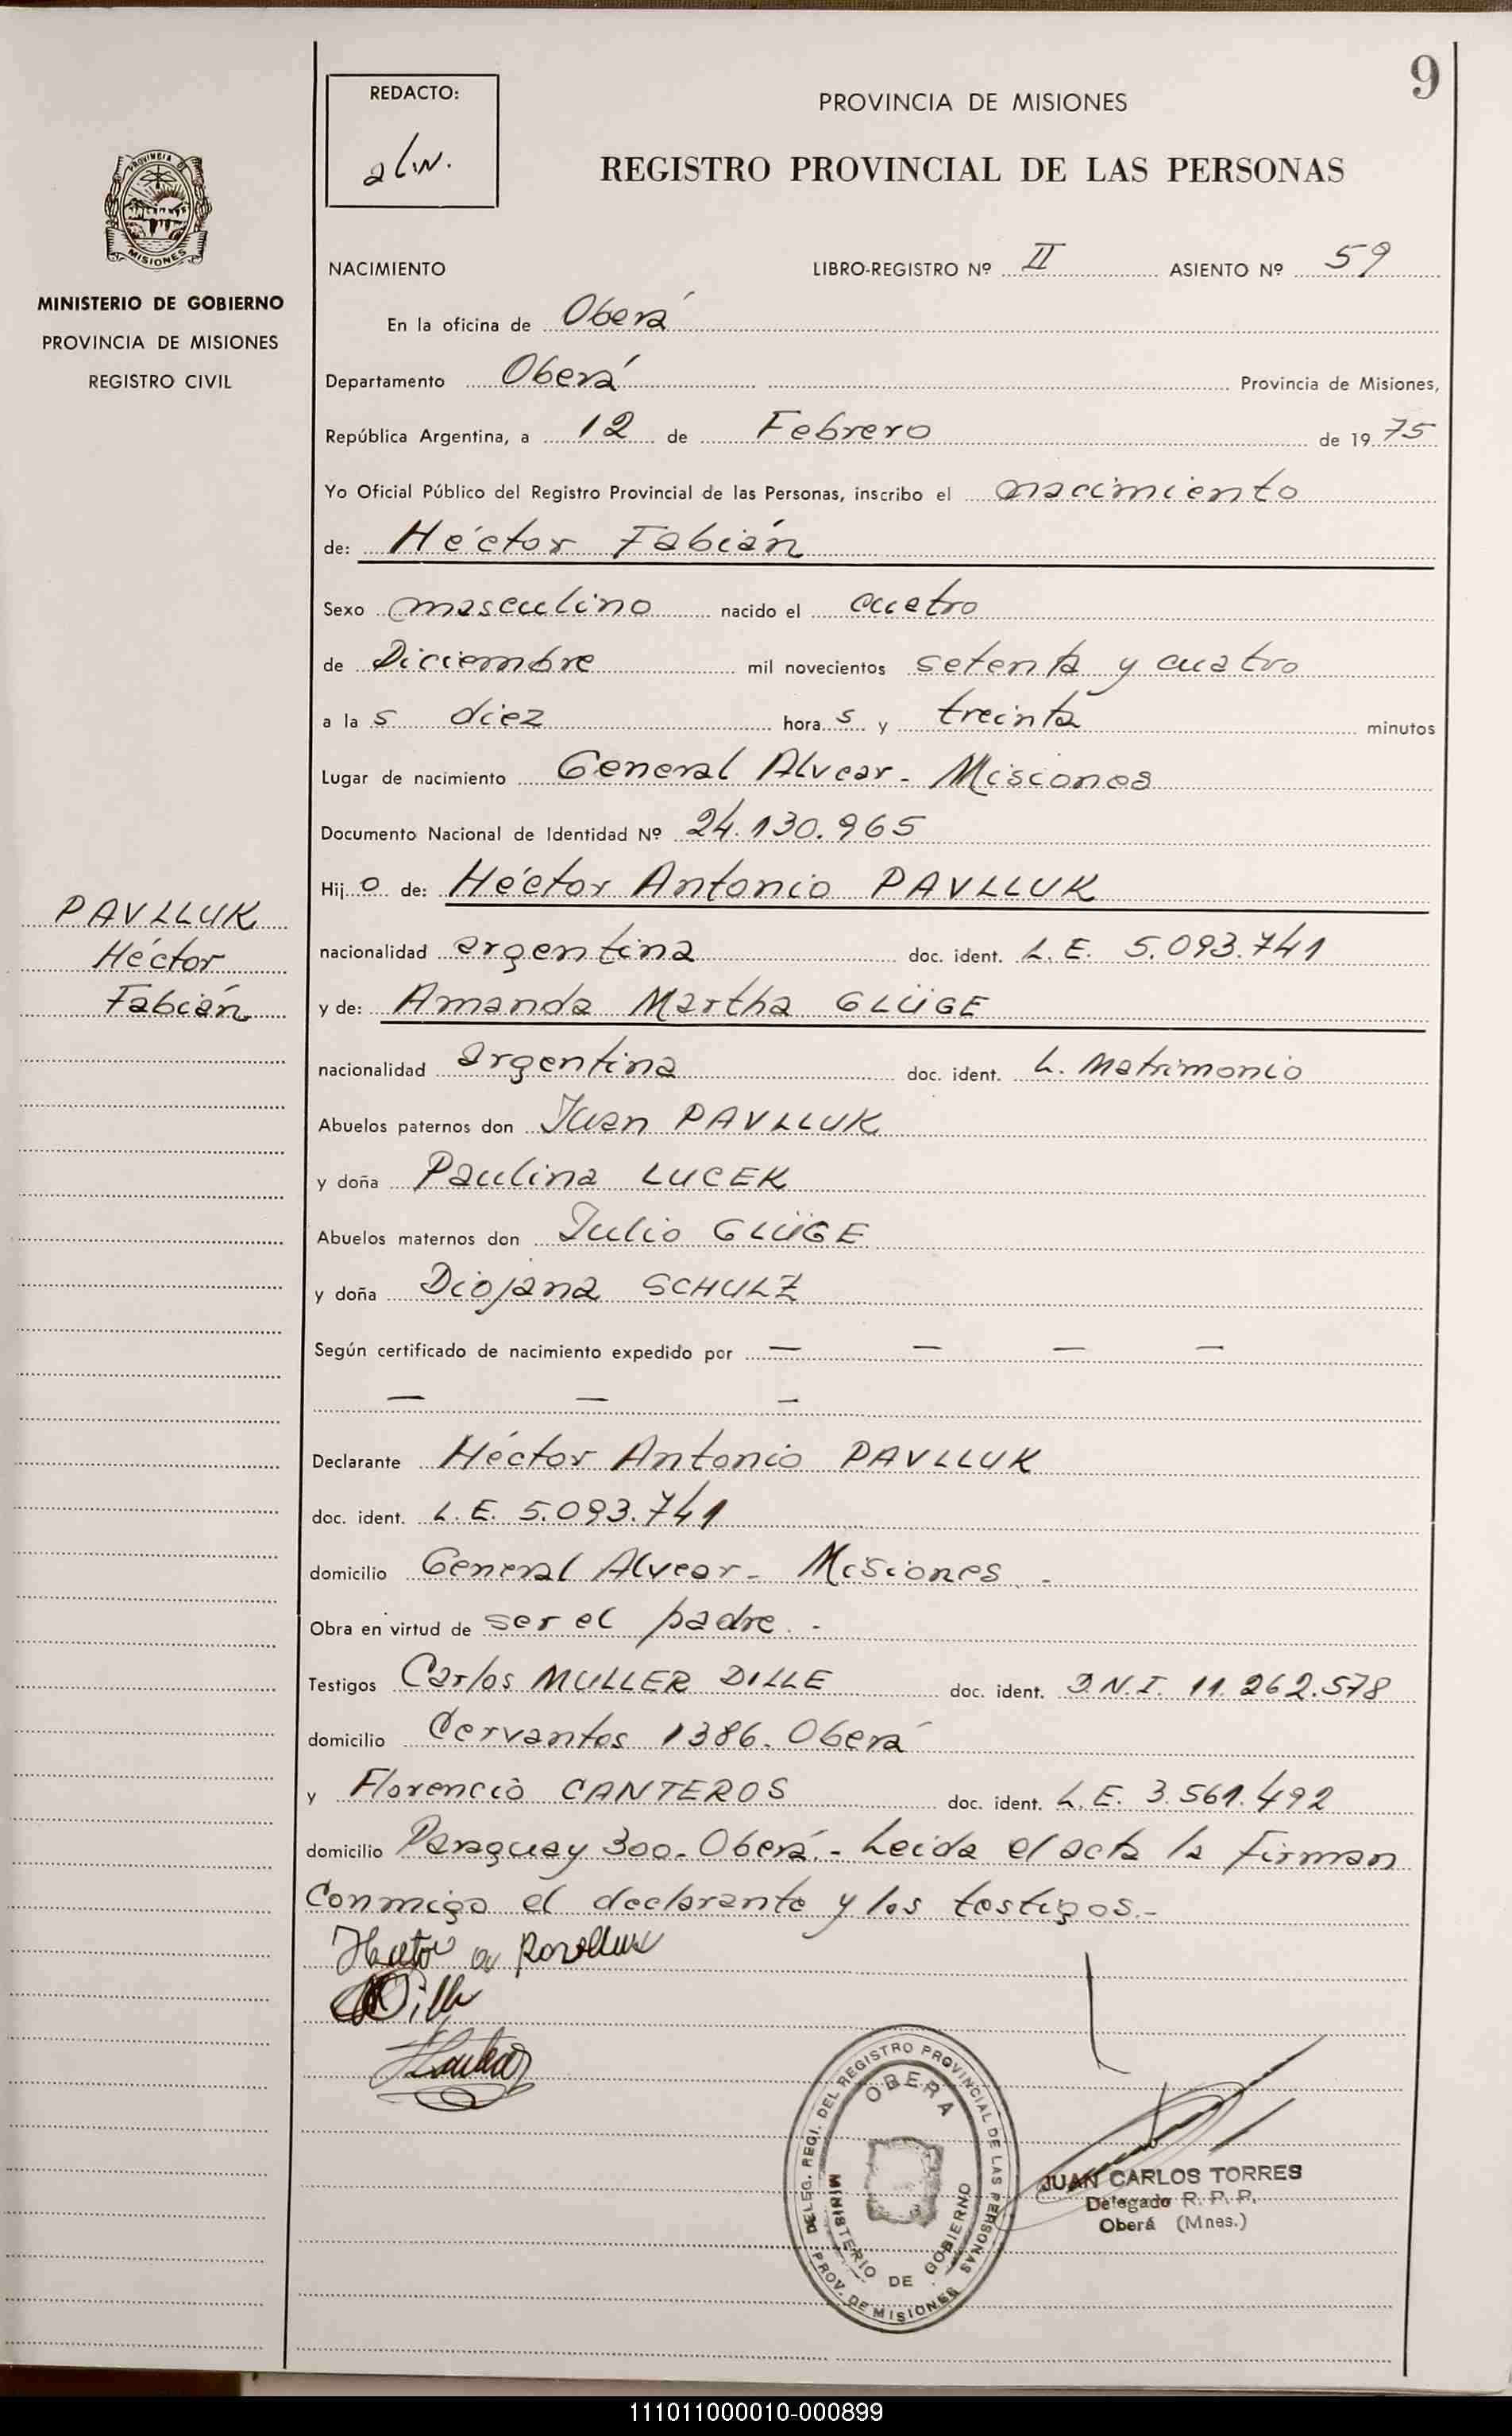 9
REDACTO:
alw.
PROVINCIA DE MISIONES
REGISTRO PROVINCIAL DE LAS PERSONAS
PROVINCIA DE
MISIONES
MINISTERIO DE GOBIERNO
PROVINCIA DE MISIONES
REGISTRO CIVIL
NACIMIENTO LIBRO-REGISTRO Nº II ASIENTO Nº 59
En la oficina de Oberá
Departamento Oberá Provincia de Misiones,
República Argentina, a 12 de Febrero de 1975
Yo Oficial Público del Registro Provincial de las Personas, inscribo el nacimiento
de: Héctor Fabián
Sexo masculino nacido el cuatro
de Diciembre mil novecientos setenta y cuatro
a las diez horas y treinta minutos
Lugar de nacimiento General Alvear - Misiones
Documento Nacional de Identidad Nº 24.130.965
Hijo de: Héctor Antonio PAVLLUK
PAVLLUK
Héctor
Fabián
nacionalidad argentina doc. ident. L.E. 5.093.741
y de: Amanda Martha GLÜGE
nacionalidad argentina doc. ident. L. Matrimonio
Abuelos paternos don Juan PAVLLUK
y doña Paulina LUCEK
Abuelos maternos don Julio GLÜGE
y doña Diojana SCHULZ
Según certificado de nacimiento expedido por — — — —
— — —
Declarante Héctor Antonio PAVLLUK
doc. ident. L.E. 5.093.741
domicilio General Alvear - Misiones. -
Obra en virtud de ser el padre. -
Testigos Carlos MULLER DILLE doc. ident. D.N.I. 11.262.578
domicilio Cervantes 1386. Oberá
y Florencio CANTEROS doc. ident. L.E. 3.561.492
domicilio Paraguay 300. Oberá. - Leida el acta la firman
conmigo el declarante y los testigos. -
Hector a Pavlluk
Dille
DELEG. REGI. DEL REGISTRO PROVINCIAL DE LAS PERSONAS
OBERA
MINISTERIO DE GOBIERNO
PROV. DE MISIONES
JUAN CARLOS TORRES
Delegado R. P. P.
Oberá (Mnes.)
111011000010-000899